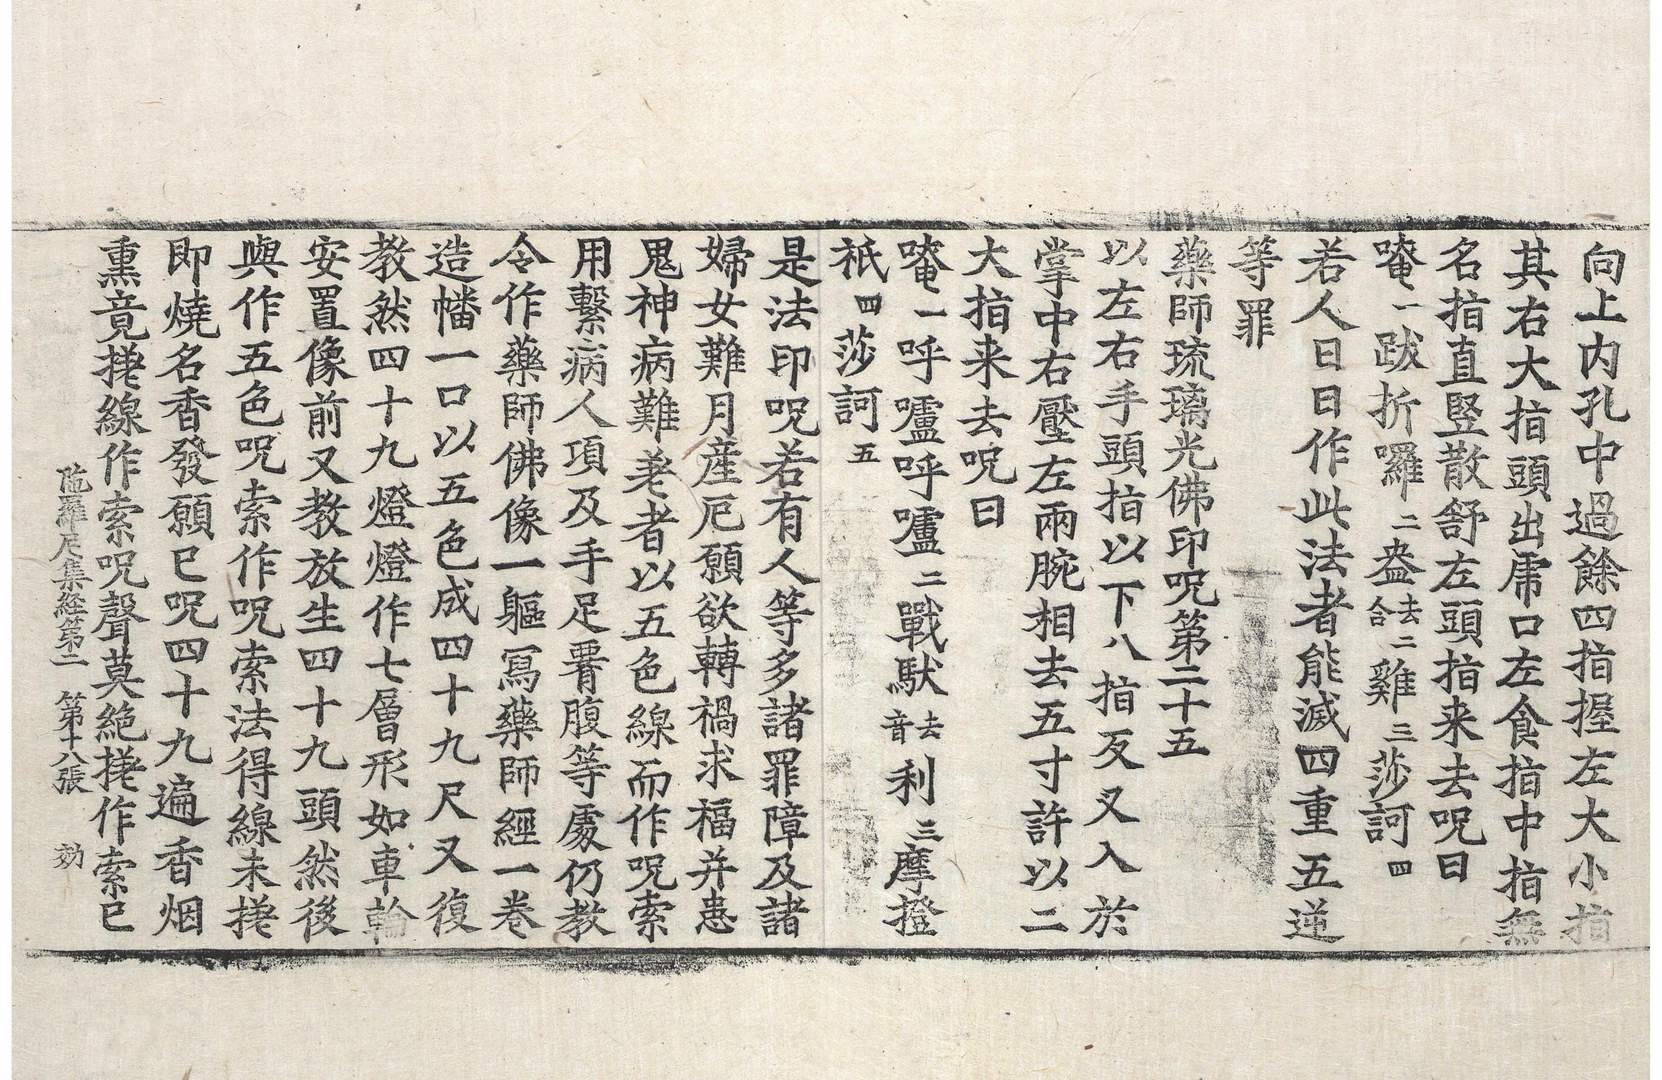 向上內孔中過餘四指握左大小指
其右大指頭出席口左食指中指無
名指直竪散舒左頭指来去呪曰
唵一跋折囉二盎去二合雞三莎訶四
若人日日作此法者能滅四重五逆
等罪
藥師琉璃光佛印呪第二十五
以左右手頭指以下八指反叉入於
掌中右壓左兩腕相去五寸許以二
大指来去呪曰
唵一呼嚧呼嚧二戰馱去音利三摩撜
祇四莎訶五
是法印呪若有人等多諸罪障及諸
婦女難月産厄願欲轉禍求福并患
鬼神病難差者以五色線而作呪索
用繫病人項及手足𦚾腹等處仍教
令作藥師佛像一軀寫藥師經一卷
造幡一口以五色成四十九尺又復
教然四十九燈燈作七層形如車輪
安置像前又教放生四十九頭然後
與作五色呪索作呪索法得線未搓
即燒名香發願已呪四十九遍香烟
熏竟搓線作索呪聲莫絶搓作索已
陁羅尼集経第二 第十八張 効